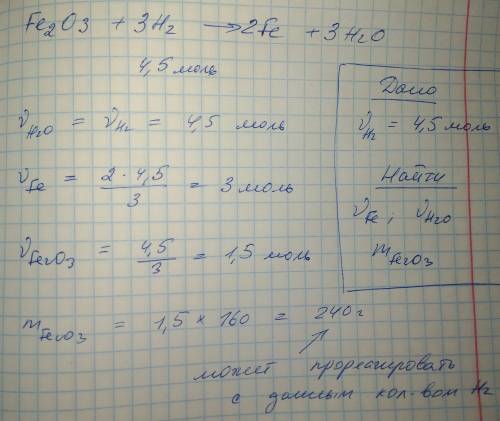 Fe2O3 + 3H2 → 2Fe + 3H2O
4,5 моль
νH2O = νH2 = 4,5 моль
νFe = 2·4,5/3 = 3 моль
νFe2O3 = 4,5/3 = 1,5 моль
mFe2O3 = 1,5 × 160 = 240 г
может прореагировать
с данным кол-вом H2
Дано
νH2 = 4,5 моль
Найти
νFe; νH2O
mFe2O3